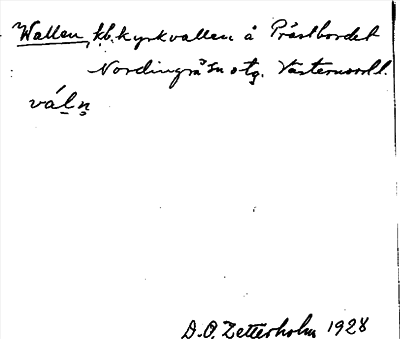 Wallen, kb. kyrkvallen å Prästbordet
Nordingrå sn o tg. Västernorrl. l.
vál̲n̥
D.O. Zetterholm 1928